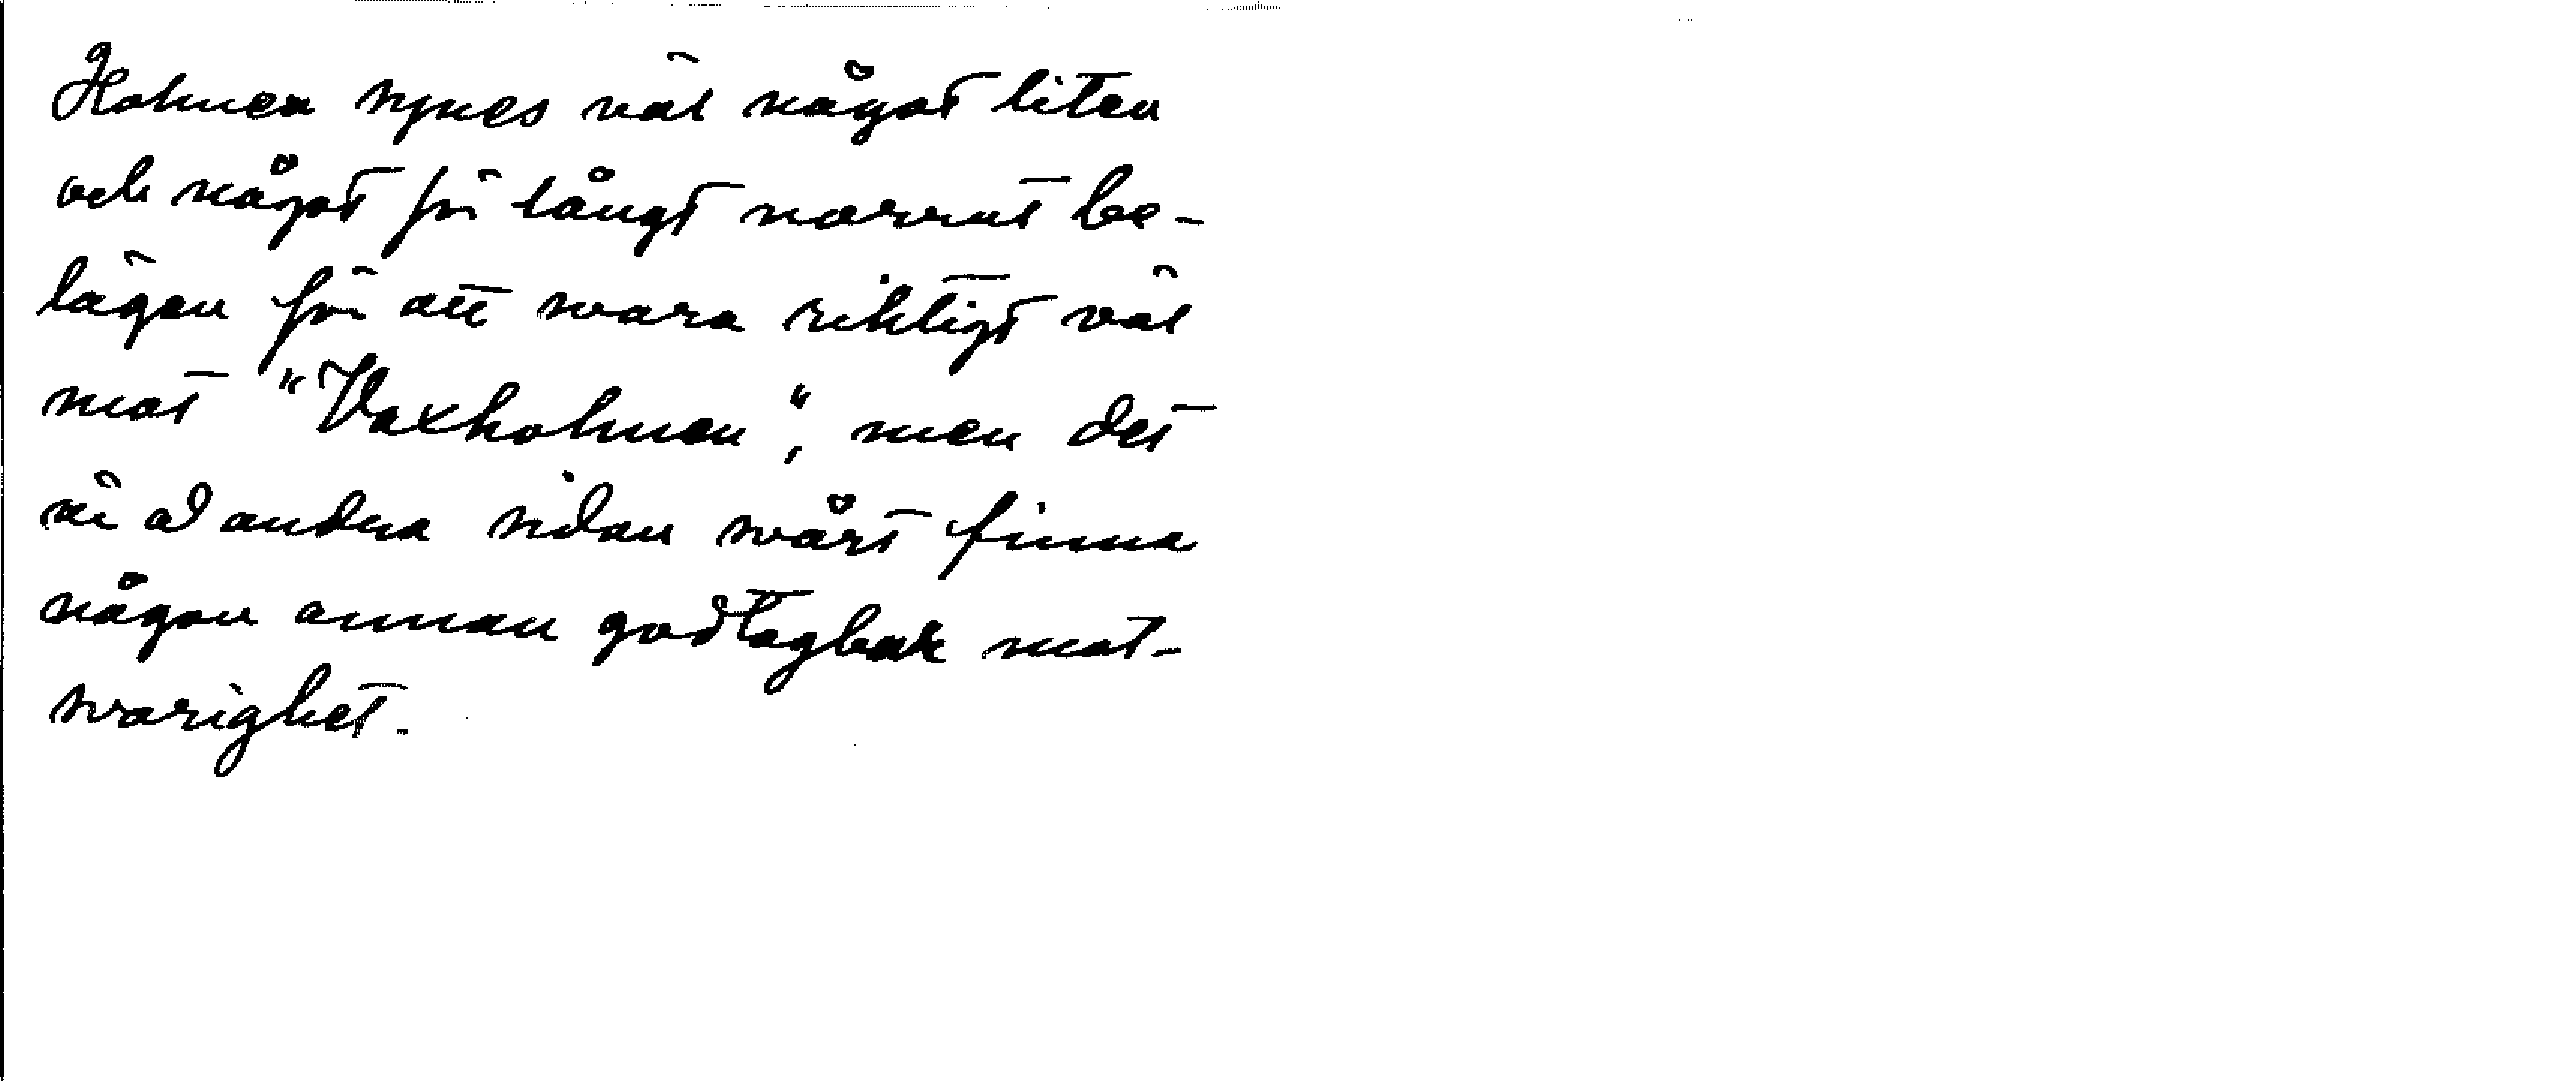 Holmen synes väl något liten
och något för långt norrut be-
lägen för att svara riktigt väl
mot "Vaxholmen", men det
är å andra sidan svårt finna
någon annan godtagbar mot-
svarighet.